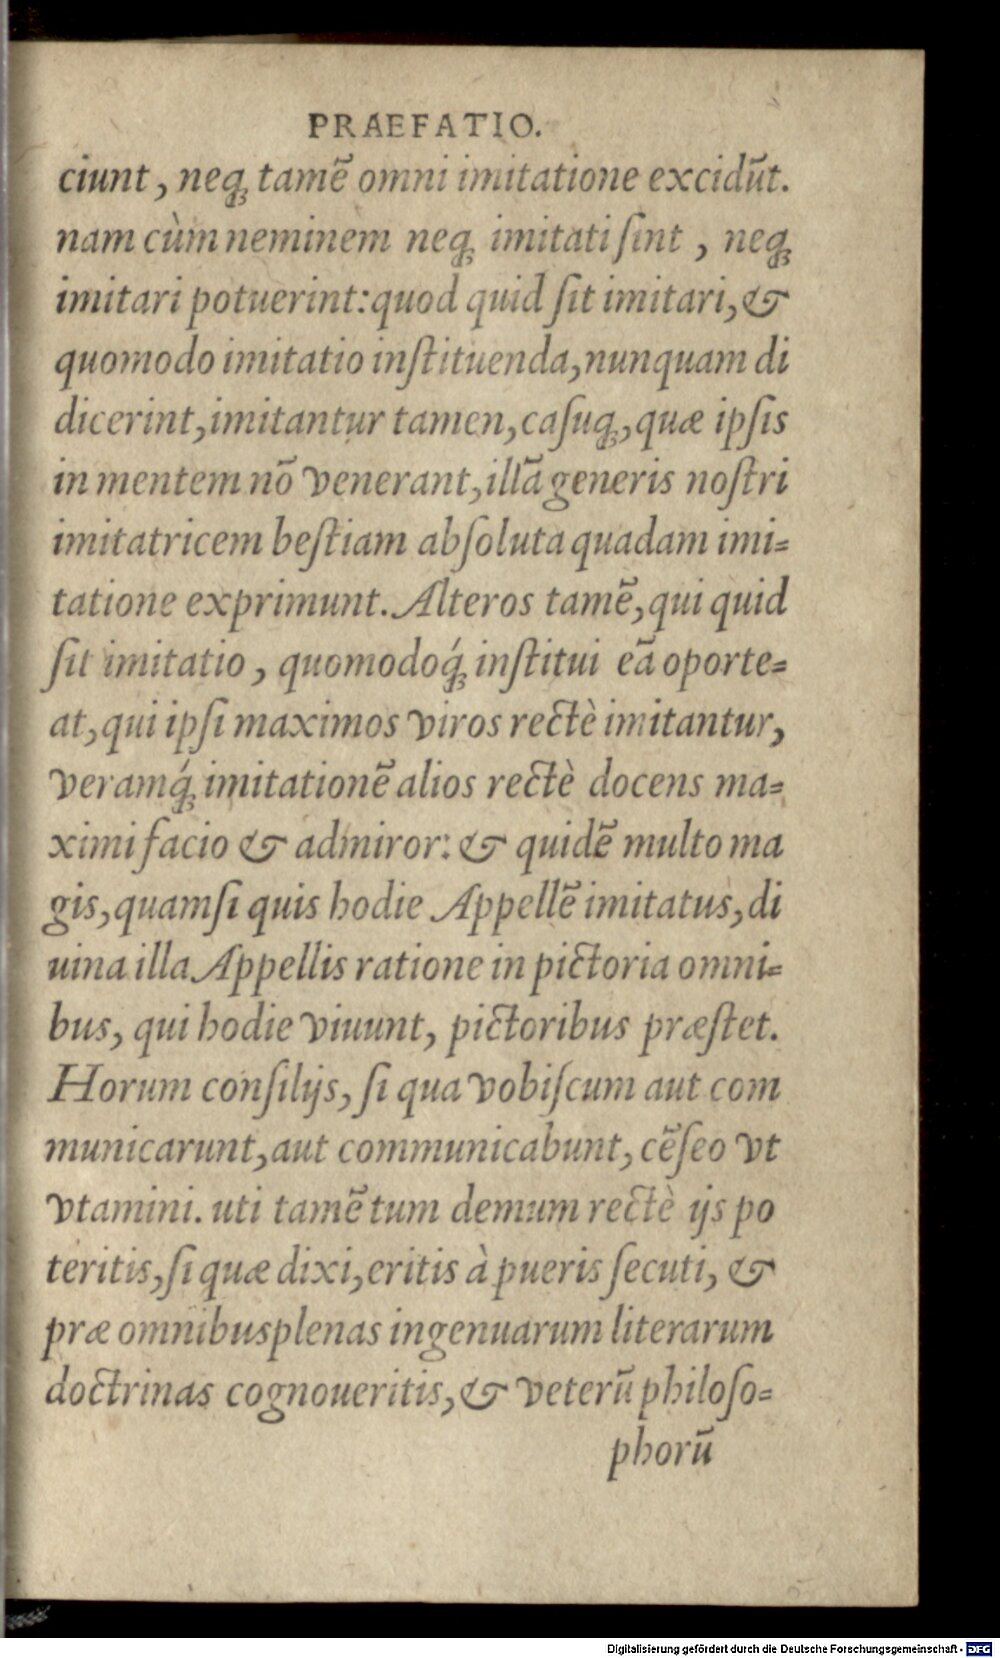 PRAEFATIO.
ciunt, neqꝫ tamē omni imitatione excidūt.
nam cùm neminem neqꝫ imitati ſint , neqꝫ
imitari potuerint: quod quid ſit imitari, &
quomodo imitatio inſtituenda, nunquam di
dicerint, imitantur tamen, caſuqꝫ, quæ ipſis
in mentem nō venerant, illā generis noſtri
imitatricem beſtiam abſoluta quadam imi-
tatione exprimunt. Alteros tamē, qui quid
ſit imitatio , quomodoq́ꝫ inſtitui eā oporte-
at, qui ipſi maximos viros rectè imitantur,
veramq́ꝫ imitationē alios rectè docens ma-
ximi facio & admiror: & quidē multo ma
gis, quamſi quis hodie Appellē imitatus, di
uina illa Appellis ratione in pictoria omni-
bus, qui hodie viuunt, pictoribus præſtet.
Horum conſilijs, ſi qua vobiſcum aut com
municarunt, aut communicabunt, cēſeo vt
vtamini. uti tamē tum demum rectè ijs po
teritis, ſi quæ dixi, eritis à pueris ſecuti, &
præ omnibusplenas ingenuarum literarum
doctrinas cognoueritis, & veterū philoſo-
phorū
Digitalisierung gefördert durch die Deutsche Forschungsgemeinschaft - DFG